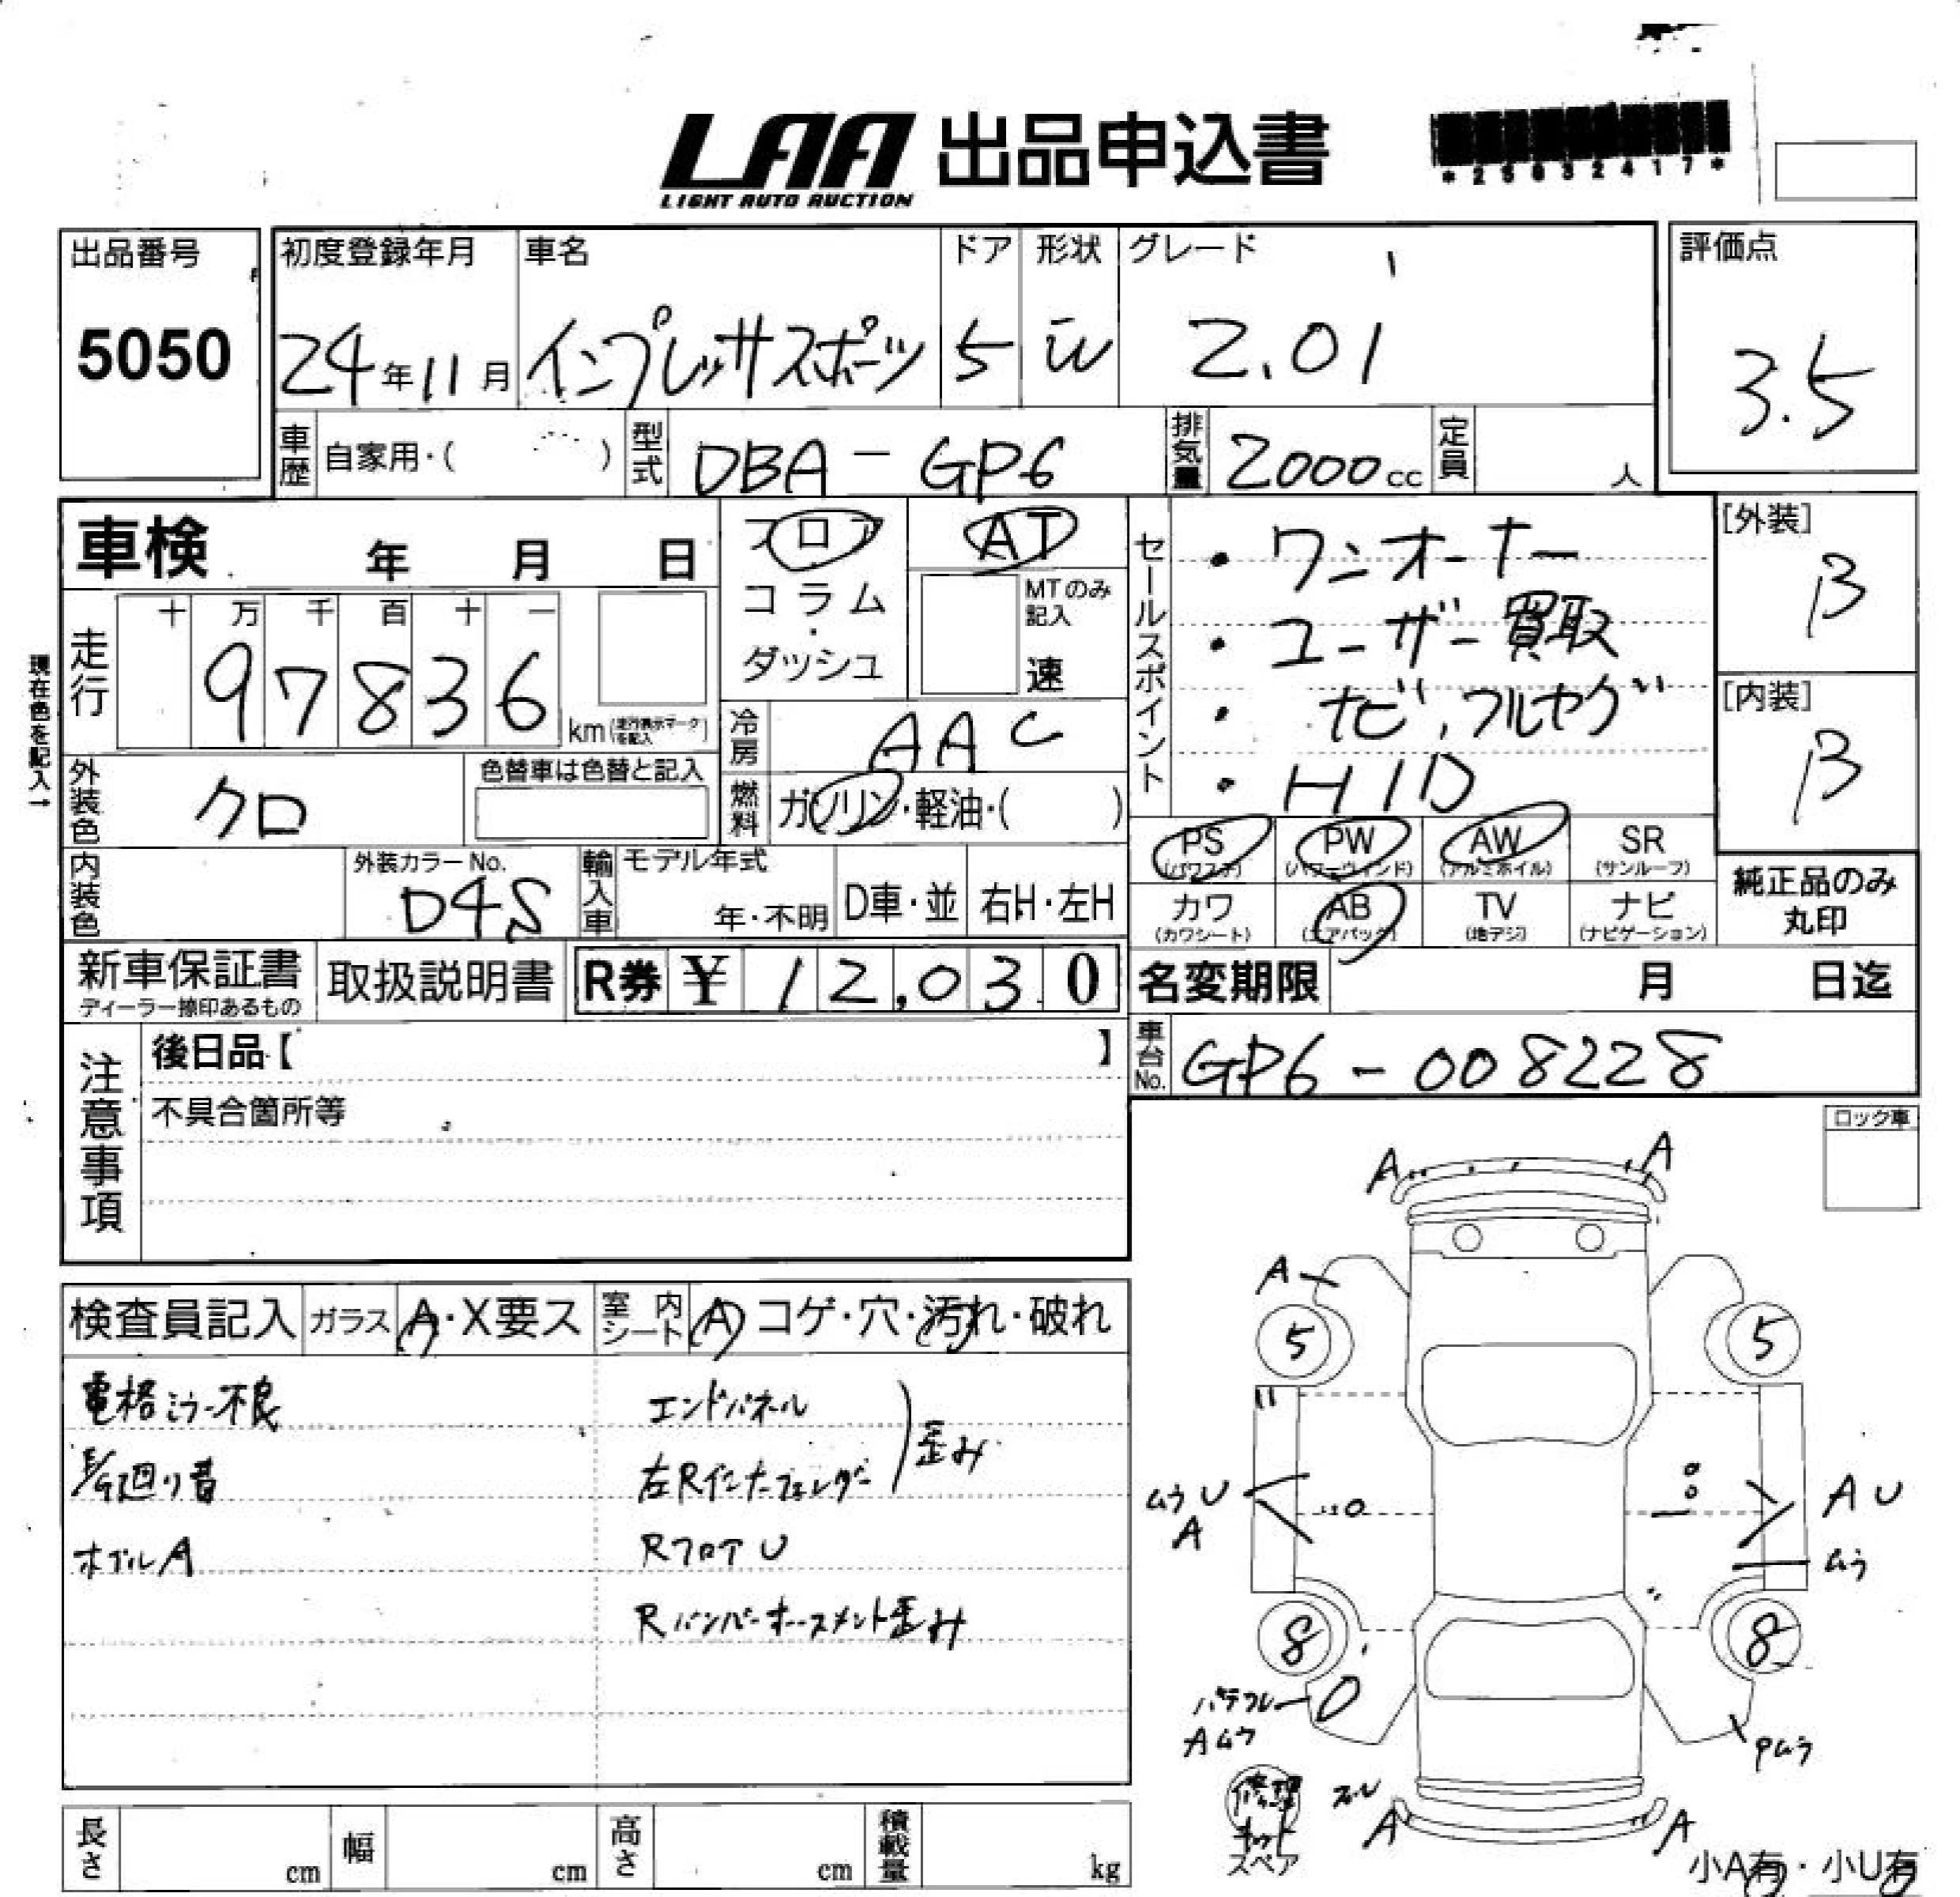 LAA 出品申込書
LIGHT AUTO AUCTION
出品番号
5050
初度登録年月
24年11月
車名
インプレッサスポーツ
ドア
5
形状
W
グレード
2.0i
評価点
3.5
車歴 自家用・( )
型式 DBA-GP6
排気量 2000cc
定員 人
車検 年 月 日
フロア
コラム・
ダッシュ
AT
MTのみ記入
速
セールスポイント
・ワンオーナー
・ユーザー買取
・ナビ,フルセグ
・HID
[外装]
B
[内装]
B
現在色を記入→
走行 十 万 千 百 十 一
97836 km(走行表示マークを記入)
冷房 AAC
燃料 ガソリン・軽油・( )
外装色 クロ
色替車は色替と記入
PS (パワステ)
PW (パワーウィンド)
AW (アルミホイル)
SR (サンルーフ)
カワ (カワシート)
AB (エアバッグ)
TV (地デジ)
ナビ (ナビゲーション)
純正品のみ
丸印
内装色
外装カラーNo.
D4S
輸入車 モデル年式
年・不明 D車・並 右H・左H
新車保証書
ディーラー捺印あるもの
取扱説明書
R券 ¥ 12,030
名変期限 月 日迄
車台No. GP6-008228
注意事項
後日品【 】
不具合箇所等
ロック車
検査員記入 ガラス A・X要ス 室内シート A コゲ・穴・汚れ・破れ
電格ミラー不良
E/G廻り音
ホイルA
エンドパネル
左Rインナーフェンダー
歪み
RフロアU
Rバンパーホースメント歪み
A
A
A
5
5
ムラU
A
AU
ムラ
8
8
パテフレ
Aムラ
Pムラ
修理
キット
スペア
A
A
小A有・小U有
長さ cm 幅 cm 高さ cm 積載量 kg